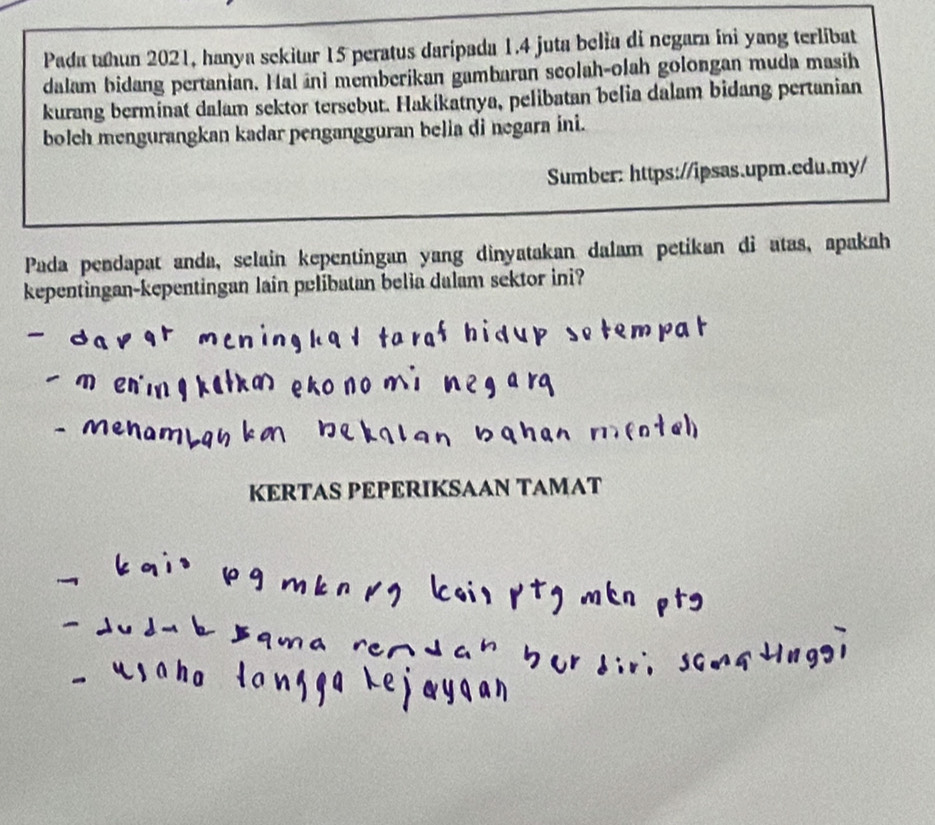 Pada tahun 2021, hanya sekitar 15 peratus daripada 1.4 juta belia di negara ini yang terlibat
dalam bidang pertanian. Hal ini memberikan gambaran seolah-olah golongan muda masih
kurang berminat dalam sektor tersebut. Hakikatnya, pelibatan belia dalam bidang pertanian
boleh mengurangkan kadar pengangguran belia di negara ini.
Sumber: https://ipsas.upm.edu.my/
Pada pendapat anda, selain kepentingan yang dinyatakan dalam petikan di atas, apakah
kepentingan-kepentingan lain pelibatan belia dalam sektor ini?
- dapat meningkat taraf hidup setempat
- meningkatkan ekonomi negara
- menambahkan bekalan bahan mentah
KERTAS PEPERIKSAAN TAMAT
- kais pg mkn pg kais ptg mkn ptg
- duduk sama rendah berdiri sama tinggi
- usaha tangga kejayaan